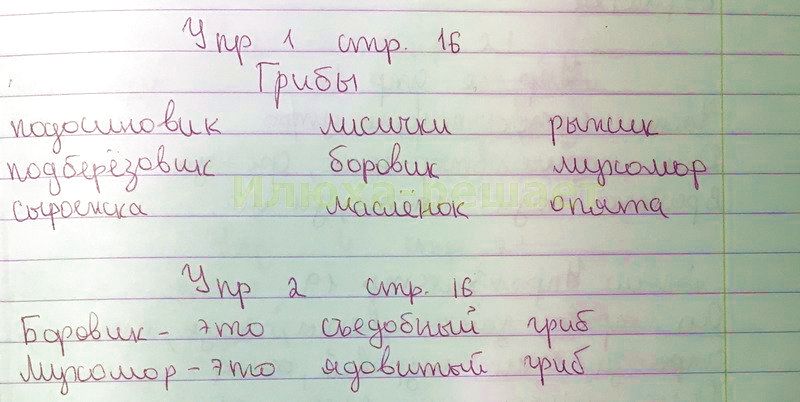 Упр 1 стр. 16
Грибы
подосиновик лисички рыжик
подберёзовик боровик мухомор
Илюха-решает
сыроежка маслёнок опята
Упр 2 стр. 16
Боровик - это съедобный гриб
Мухомор - это ядовитый гриб